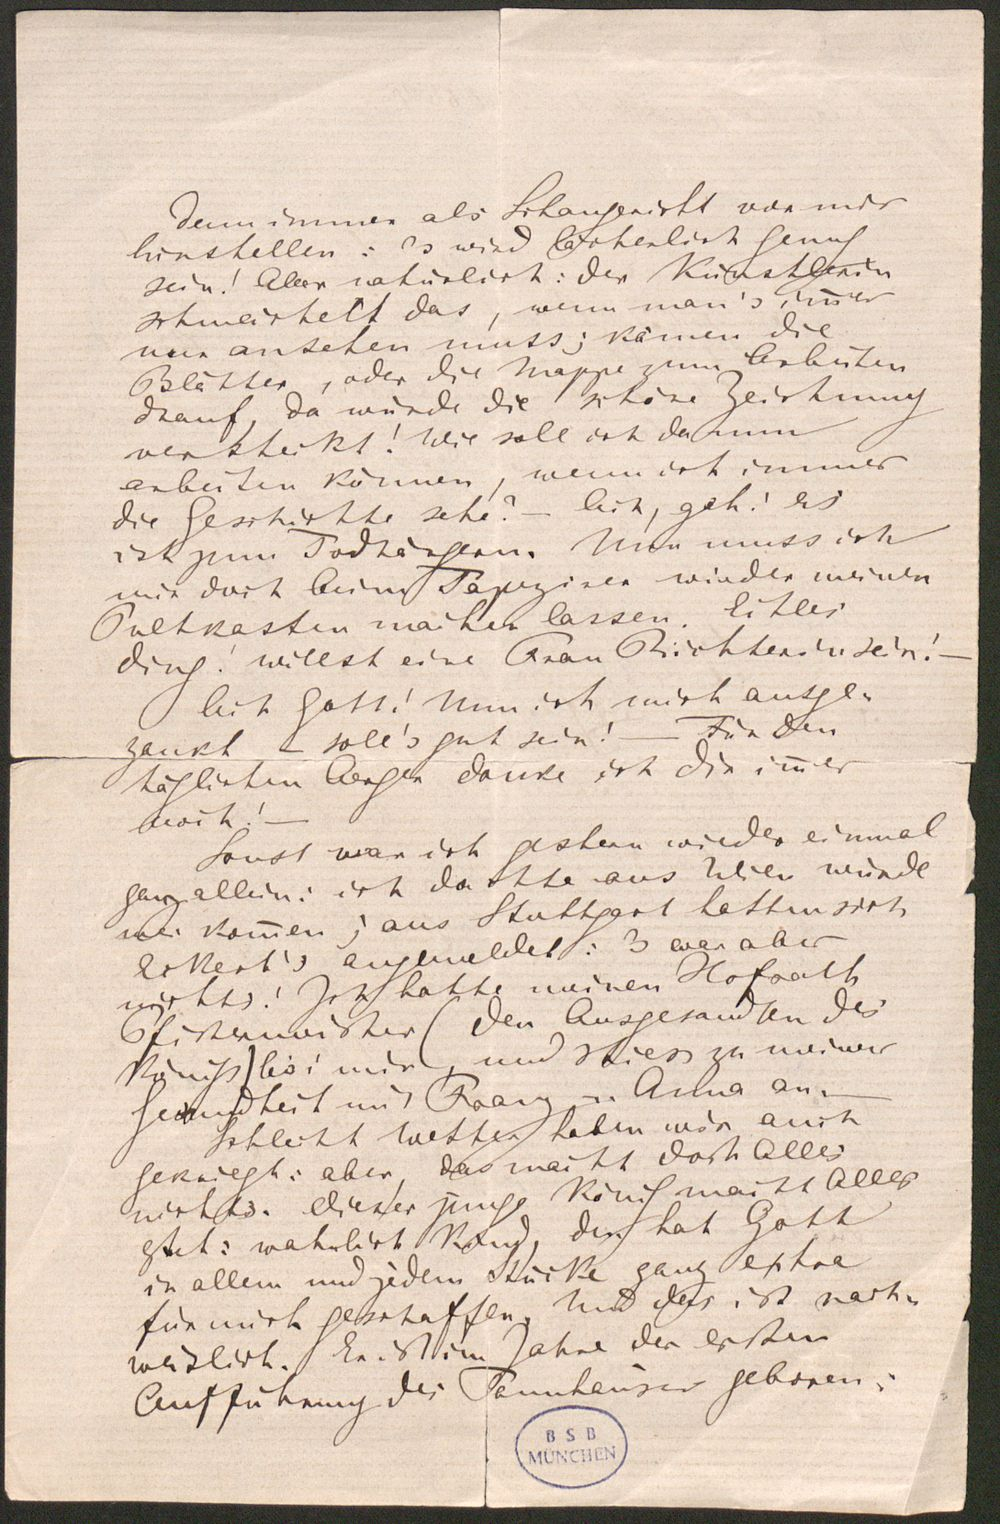 denn immer als Schaugericht vor mir
hinstellen: 's wird lächerlich genug
sein! Aber natürlich: der Künstlerin
schmeichelt das, wenn man's im̅er
nur ansehen muss; kämen die
Blätter, oder die Mappe zum Arbeiten
drauf, da würde die schöne Zeichnung
versteckt! Wie soll ich da nun
arbeiten können, wenn ich immer
die Geschichte sehe? — Ach, geh! es
ist zum Todtärgern. Nun muss ich
mir doch beim Tapezirer wieder meinen
Pultkasten machen lassen. Eitles
Ding! willst eine Frau Richterin sein! —
Ach Gott! Nun ich mich ausge-
zankt – soll's gut sein! — Für den
täglichen Aerger danke ich dir im̅er
noch! —
Sonst war ich gestern wieder einmal
ganz allein: ich dachte aus Wien würde
wer kom̅en; aus Stuttgart hatten sich
Eckert's angemeldet: 's war aber
nichts! Ich hatte meinen Hofrath
Pfistermeister (den Ausgesandten des
Königs) bei mir, und stiess zu meiner
Gesundheit mit Franz u. Anna an. —
Schlecht Wetter haben wir auch
gekriegt: aber, das macht doch Alles
nichts. Dieser junge König macht Alles
gut: wahrlich Kind, den hat Gott
in allem und jedem Stücke ganz extra
für mich geschaffen. Und das ist nach-
weislich. Er ist im Jahre der ersten
Aufführung des Tannhäuser geboren:
BSB
MÜNCHEN